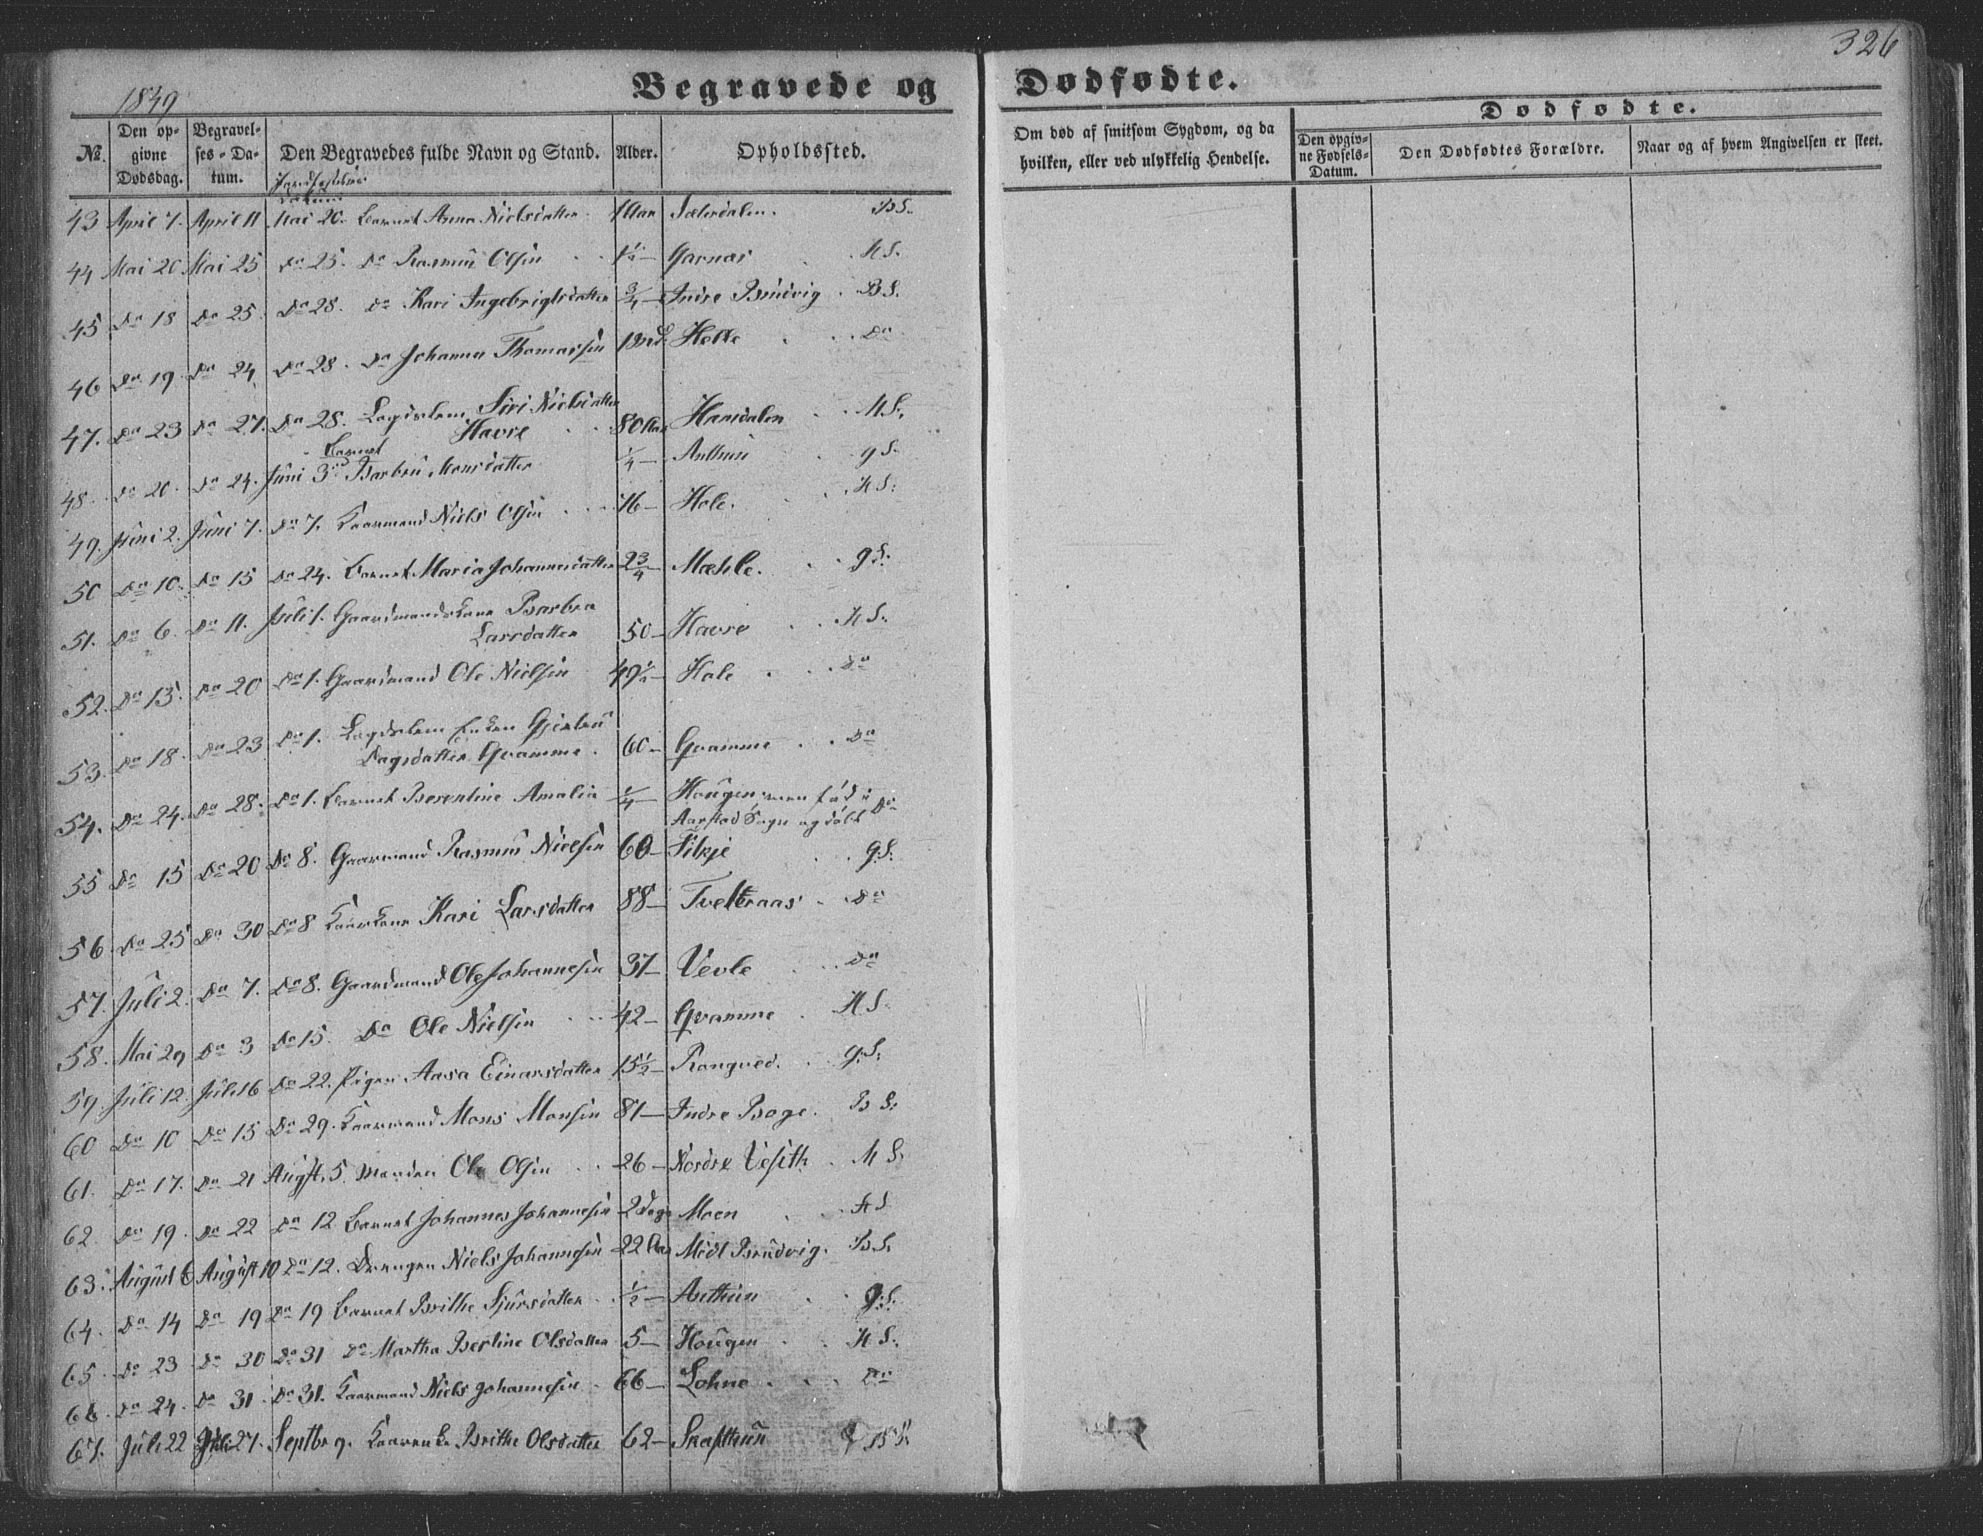 326
1849
Begravede og Dødfødte.
Dødfødte.
No.
Den opgivne Dødsdag.
Begravelses-Datum.
Den Begravedes fulde Navn og Stand.
Alder.
Opholdssted.
Om død af smitsom Sygdom, og da hvilken, eller ved ulykkelig Hendelse.
Den opgivne Fødsels-Datum.
Den Dødfødtes Forældre.
Naar og af hvem Angivelsen er skeet.
43 April 7. April 11 Mai 20. Barnet Anna Nielsdatter 1 Aar Sæterdalen. BS.
44 Mai 20 Mai 25 Do 25. Do Rasmus Olsen 1½ — Garnas HS.
45 Do 18 Do 25 Do 28. Do Kari Ingebrigtsdatter ¾ — Indre Brudvig BS.
46 Do 19 Do 24 Do 28. Do Johannes Thomassen Helle Do
47. Do 23 Do 27. Do 28. Lægdslem Siri Nielsdatter
Havre 80 Aar Hansdalen HS.
Barnet
48. Do 20. Do 24. Juni 3 Barbru Monsdatter ¼ — Anthun gS.
49. Juni 2. Juni 7. Do 7. Kaarmand Niels Olsen 76 — Hole. HS.
50 Do 10. Do 15 Do 24. Barnet Maria Johannesdatter 2¾ — Mæhle. gS.
51. Do 6. Do 11. Juli 1. Gaardmandskone Barbra
Larsdatter 50 — Havre HS.
52. Do 13. Do 20 Do 1. Gaardmand Ole Nielsen 49½ — Hole Do
53. Do 18. Do 23 Do 1. Lægdslem Enken Gjertru
Dagsdatter Qvamme. 60 — Qvamme Do
54. Do 24. Do 28. Do 1. Barnet Berentine Amalia ¼ — Hougen men fød i
Aarstad Sogn og døbt Do
55 Do 15 Do 20 Do 8. Gaardmand Rasmus Nielsen 60 — Tilkje gS.
56 Do 25 Do 30 Do 8 Kaarkone Kari Larsdatter 88 — Tvetteraas Do
57. Juli 2. Do 7. Do 8. Gaardmand Ole Johannesen 37 — Vevle Do
58. Mai 29 Do 3 Do 15. Do Ole Nielsen 42 — Qvamme HS.
59 Juli 12. Juli 16 Do 22. Pigen Aasa Einarsdatter 15½ — Rongved. gS.
60 Do 10 Do 15 Do 29. Kaarmand Mons Monsen 81 — Indre Boge. BS.
61. Do 17. Do 21 Augst. 5 Manden Ole Olsen 26 — Nordre Vefith MS.
62 Do 19. Do 22 Do 12 Barnet Johannes Johannesen 2 Dage Moen HS
63. August 6 August 10 Do 12. Drengen Niels Johannesen 22 Aar Midt Brudvig. BS.
64. Do 14 Do 19 Do 19 Barnet Brithe Sjursdatter ½ — Anthun gS.
65 Do 23 Do 30 Do 31 Do Martha Bertine Olsdatter 5 — Hougen HS.
66. Do 24. Do 31. Do 31. Kaarmand Niels Johannesen 66 — Lohne Do
67. Juli 22 Juli 27. Septbr 9. Kaarenke Brithe Olsdatter 62 — Skafthun BS.